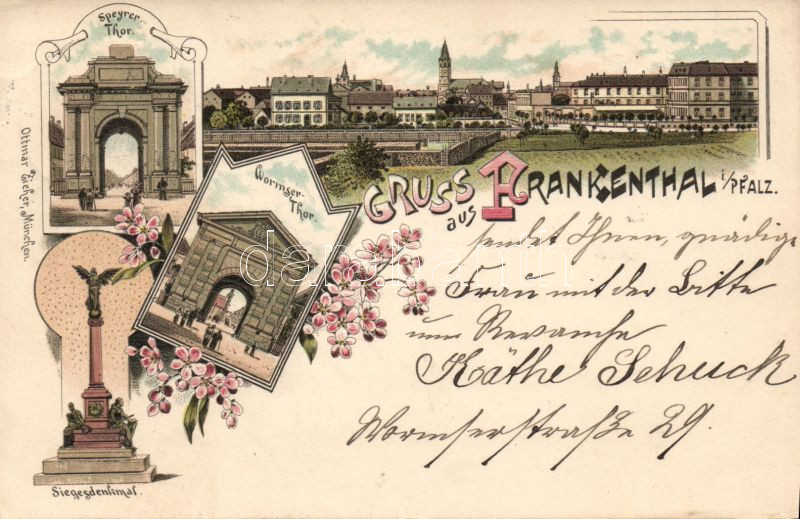 Speyrer-
Thor.
Ottmar Zieher, München.
Wormser-
Thor.
GRUSS
aus FRANKENTHAL i/PFALZ.
sendet Ihnen, gnädige
Frau mit der Bitte
um Revanche
Käthe Schuck
Wormserstraße 29.
Siegesdenkmal.
darabanth